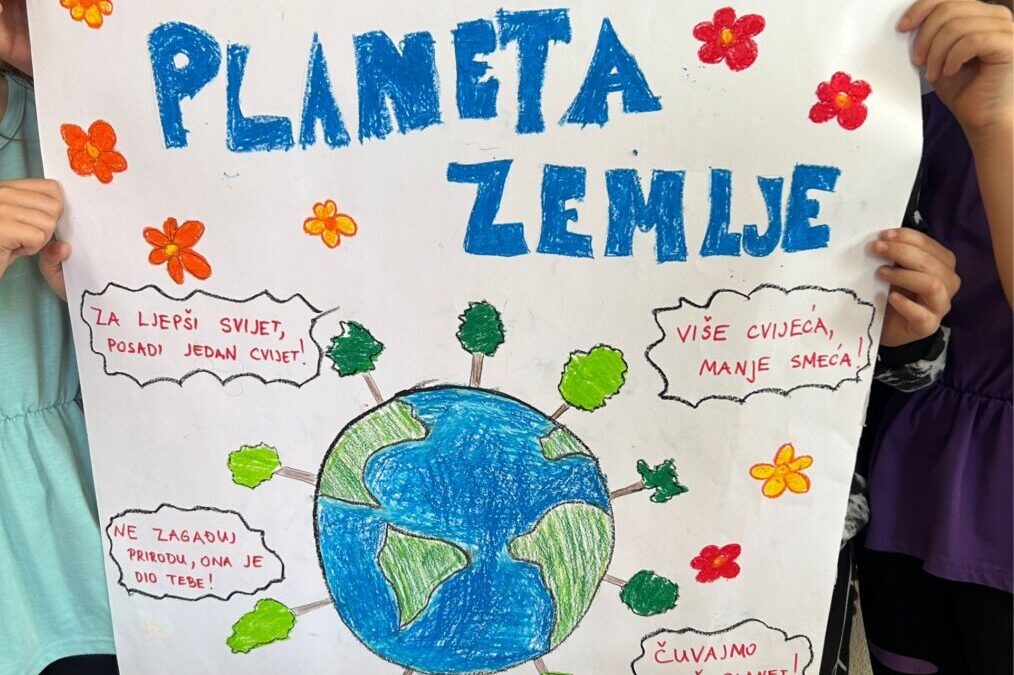 PLANETA
ZEMLJE
ZA LJEPŠI SVIJET,
POSADI JEDAN CVIJET!
VIŠE CVIJEĆA,
MANJE SMEĆA!
NE ZAGAĐUJ
PRIRODU, ONA JE
DIO TEBE!
ČUVAJMO
PLANET!